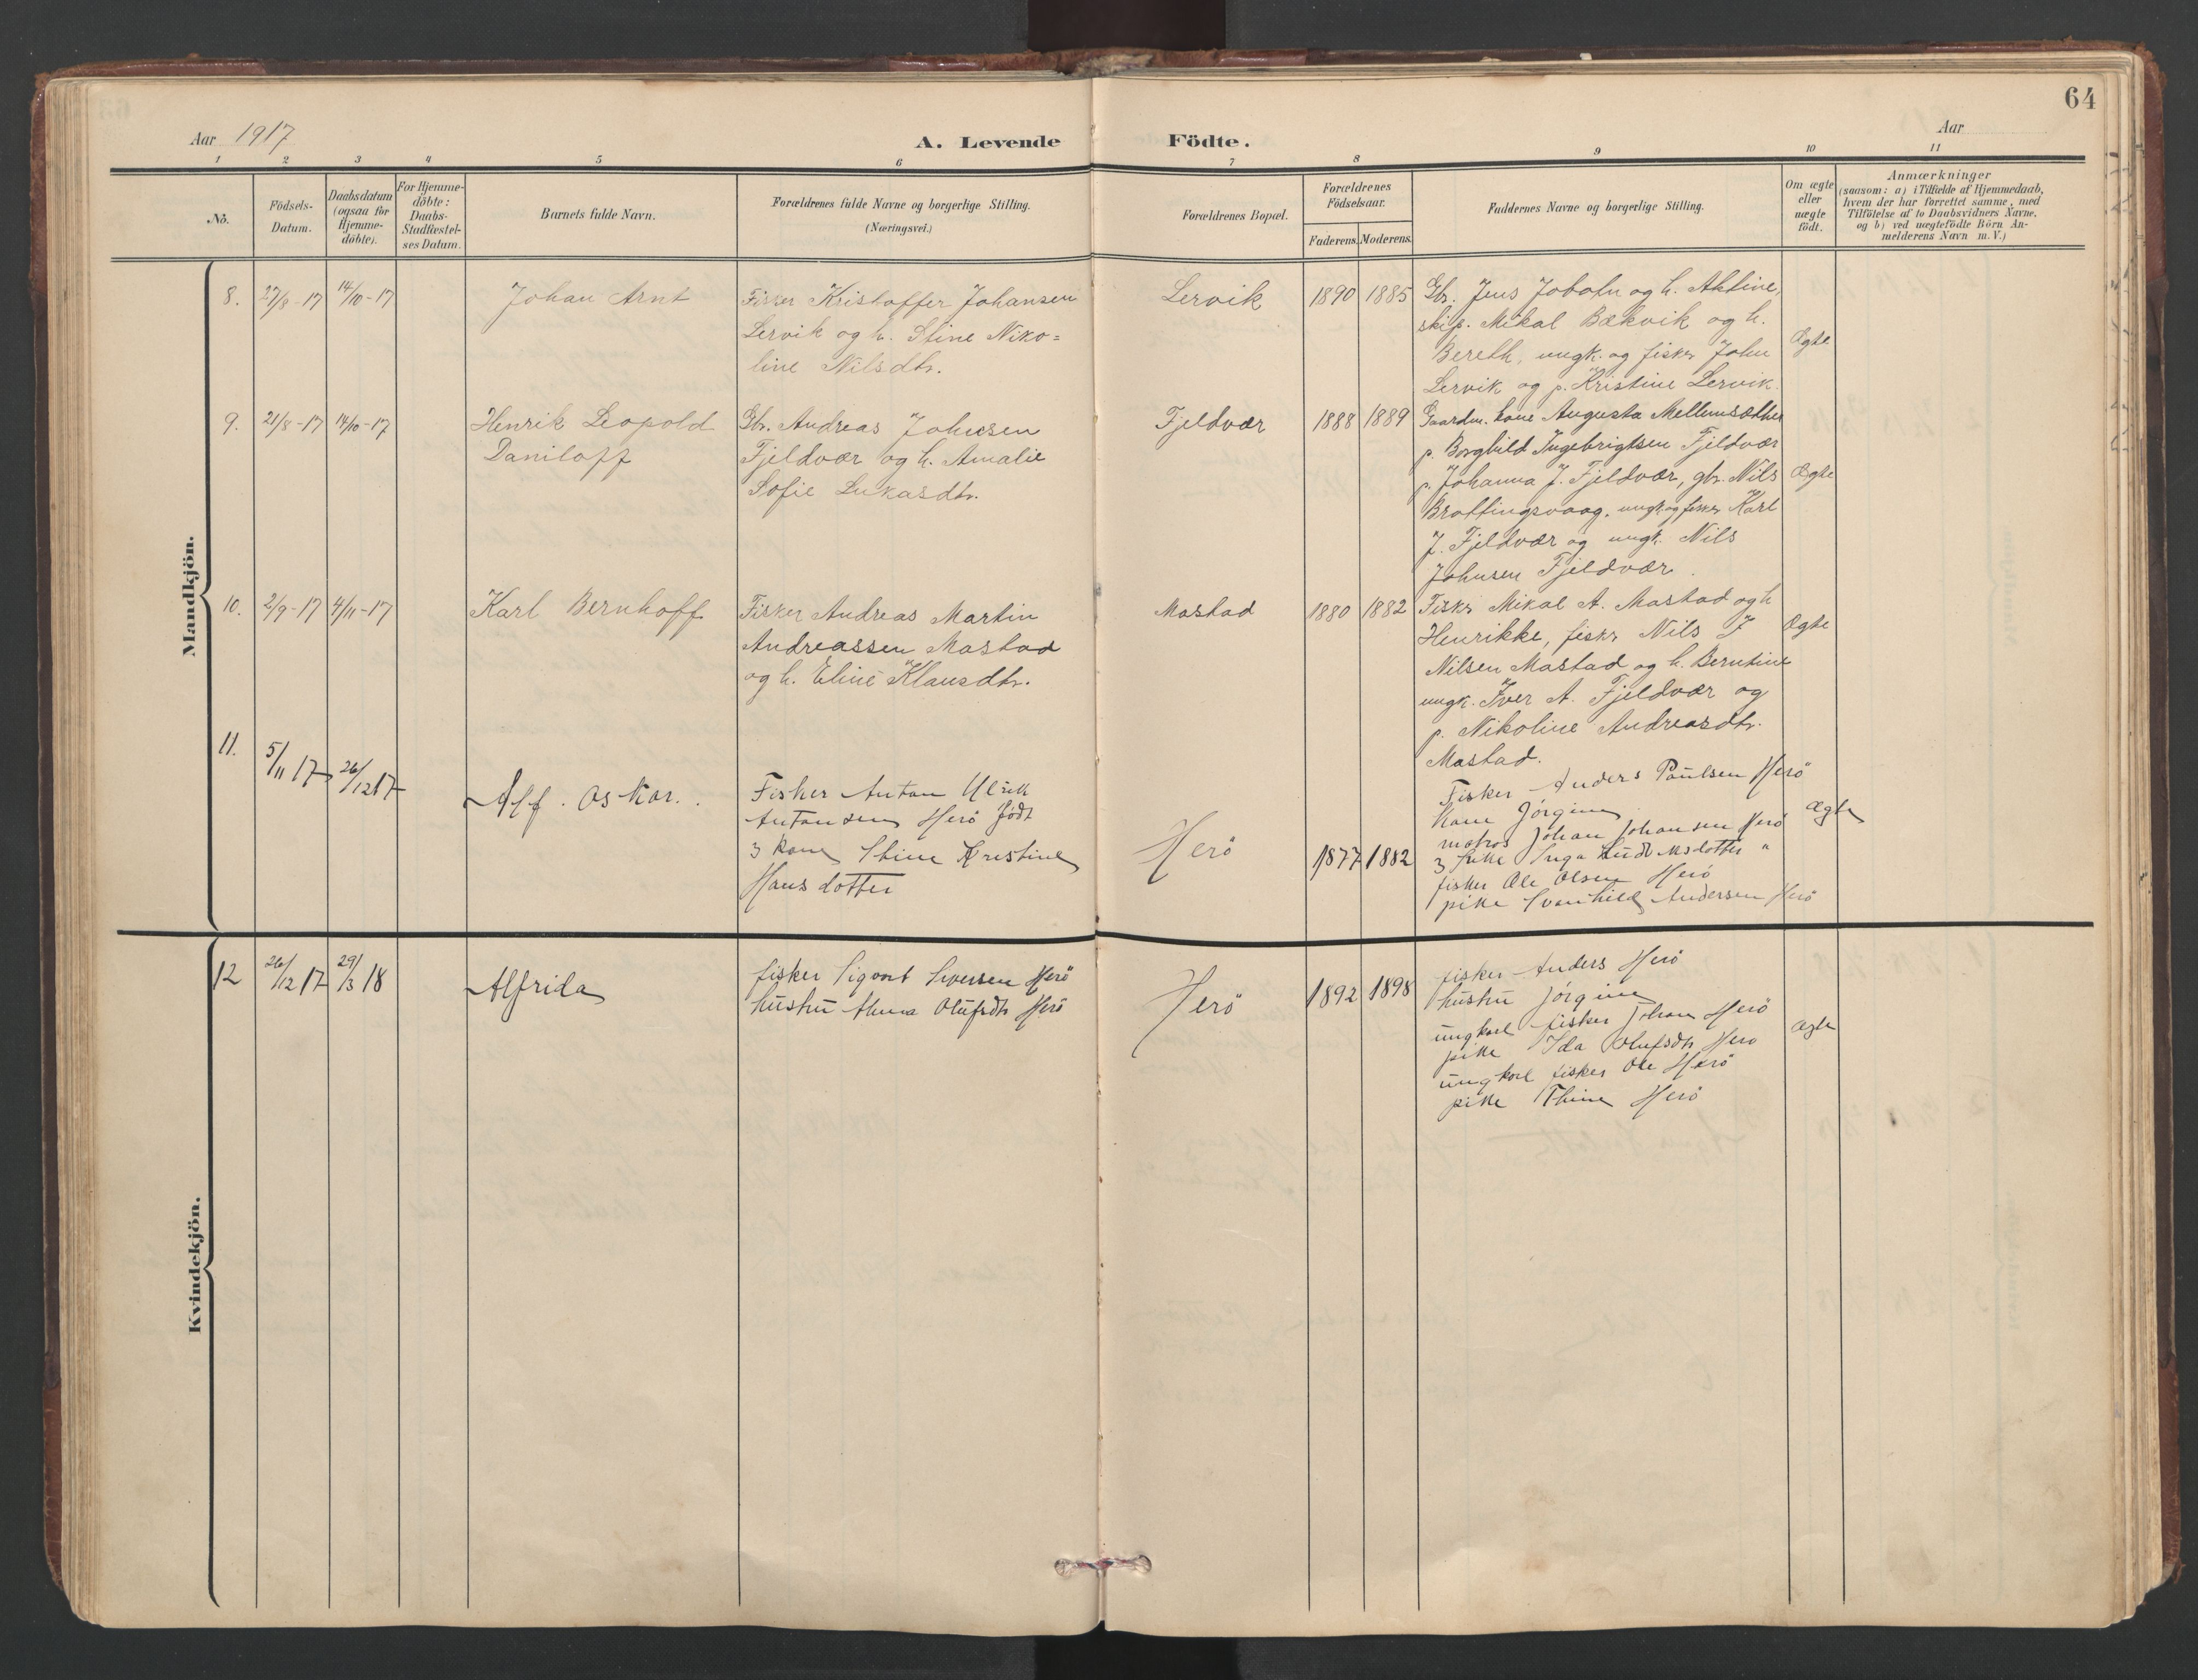 64
Aar 1917
A. Levende
Födte.
Aar
1 2 3 4 5 6 7 8 9 10 11
No.
Födsels-
Datum.
Daabsdatum
(ogsaa for
Hjemme-
döbte).
For Hjemme-
döbte:
Daabs-
Stadfæstel-
ses Datum.
Barnets fulde Navn.
Forældrenes fulde Navne og borgerlige Stilling.
(Næringsvei.)
Forældrenes Bopæl.
Forældrenes
Födselsaar.
Faderens. Moderens.
Faddernes Navne og borgerlige Stilling.
Om ægte
eller
uægte
födt.
Anmærkninger
(saasom: a) i Tilfælde af Hjemmedaab,
hvem der har forrettet samme, med
Tilföielse af to Daabsvidners Navne.
og b) ved uægtefödte Börn An-
melderens Navn m. V.)
Mandkjön.
8.
27/8-17
14/10-17
Johan Arnt
Fisker Kristoffer Johansen
Lervik og h. Stine Niko=
line Nilsdtr.
Lervik
1890
1885
Gbr. Jens og h.
skip. Mikal Bækvik og h.
Bereth, ungk. og fisker John
Lervik og p. Kristine Lervik.
Ægte
9.
21/8-17
14/10-17
Henrik Leopold
Daniloff
Gbr. Andreas Johnsen
Fjeldvær og h. Amalie
Sofie Lukasdtr.
Fjeldvær
1888
1889
Gaardm. kone Augusta Mellemsæther
p. Borghild Ingebrigtsen Fjeldvær
p. Johanna J. Fjeldvær, gbr. Nils
Brattingsvaag, ungk. og fisker Karl
J. Fjeldvær og ungk. Nils
Johnsen Fjeldvær.
Ægte
10.
2/9-17
4/11-17
Karl Bernhoff
Fisker Andreas Martin
Andreassen Mastad
og h. Eline Klausdtr.
Mastad
1880
1882
Fisker Mikal A. Mastad og h
Henrikke, fisker Nils J
Nilsen Mastad og h. Berntine
ungk. Iver A. Fjeldvær og
p. Nikoline Andreasdtr.
Mastad.
Ægte
11.
5/11 17
26/12 17
Alf. Oskar.
Fisker Anton Ulrik
Antonsen Herö født
3 kone Stine Kristine
Hans dotter
Herö
1877
1882
Fisker Anders Paulsen Herö
Kone Jörgine
matros Johan Johansen Herö
Inga "
fisker Ole Olsen Herö
pike Svanhild Andersen Herö
Ægte
Kvindekjön.
12
26/12 17
29/3 18
Alfrida
fisker Sigvart Siversen Herö
hustru Anna Olufsdtr Herö
Herö
1892
1898
fisker Anders Herö
hustru Jörgine
ungkarl fisker Johan Herö
pike Ida Olufsdtr Herö
ungkarl fisker Ole Herö
pike Thine Herö
ægte